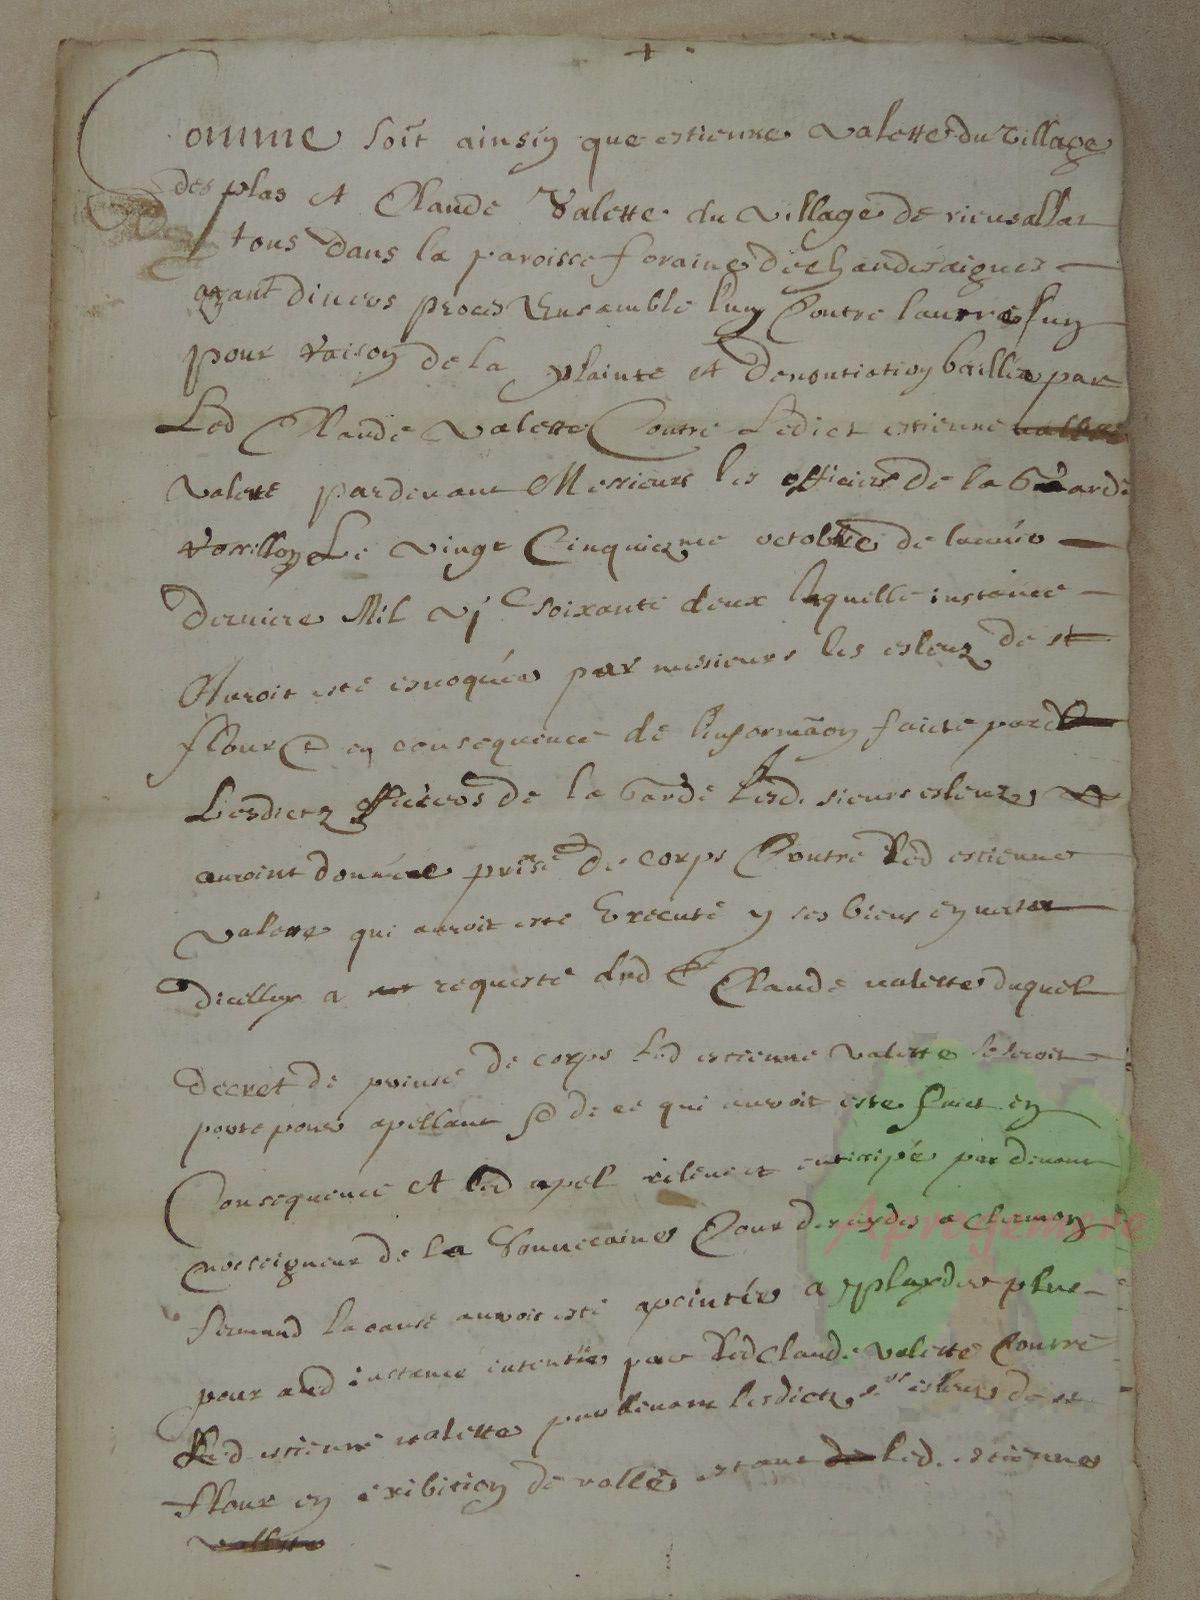 +
Comme soit ainsin que estienne Valette du Village
des plas et Claude Valette du village de rieusallat
tous dans la paroisse foraine de chaudesaigues
ayant divers proces Ensamble lun Contre lautre sur
pour raison de la plainte et denontiation baillee par
Led Claude Valette Contre Ledict estienne valette
Valette pardevant Messieurs les officiers de la Garde
Le vingt Cinquiezme octobre de lannee
derniere Mil vjc soixante deux laquelle instance
Auroit esté esvoquée par messieurs les esleuz de st
flour en consequence de linformaon faicte par
Lesdictz officiers de la Garde Lesd. sieurs esleuz
auroint donnée prise de corps Contre Led estienne
Valette qui auroit esté Executé y ses biens
dicelluy a requeste dud Claude valette duquel
Decret de prinse de corps Led estienne Valette se seroit
porte pour apellant de ce qui auroit este faict en
Consequence et led apel relevé et anticipé par devant
nosseigneur de la Souveraine Cour des aydes a clermon
ferrand la cause auroit esté apointée a playder plus
pour aud instance intentée par Led Claude Valette Contre
Led estienne valette par devant lesdictz srs esleuz de st
flour en exibition de rolle estant Led. estienne
valette
Aprogemere